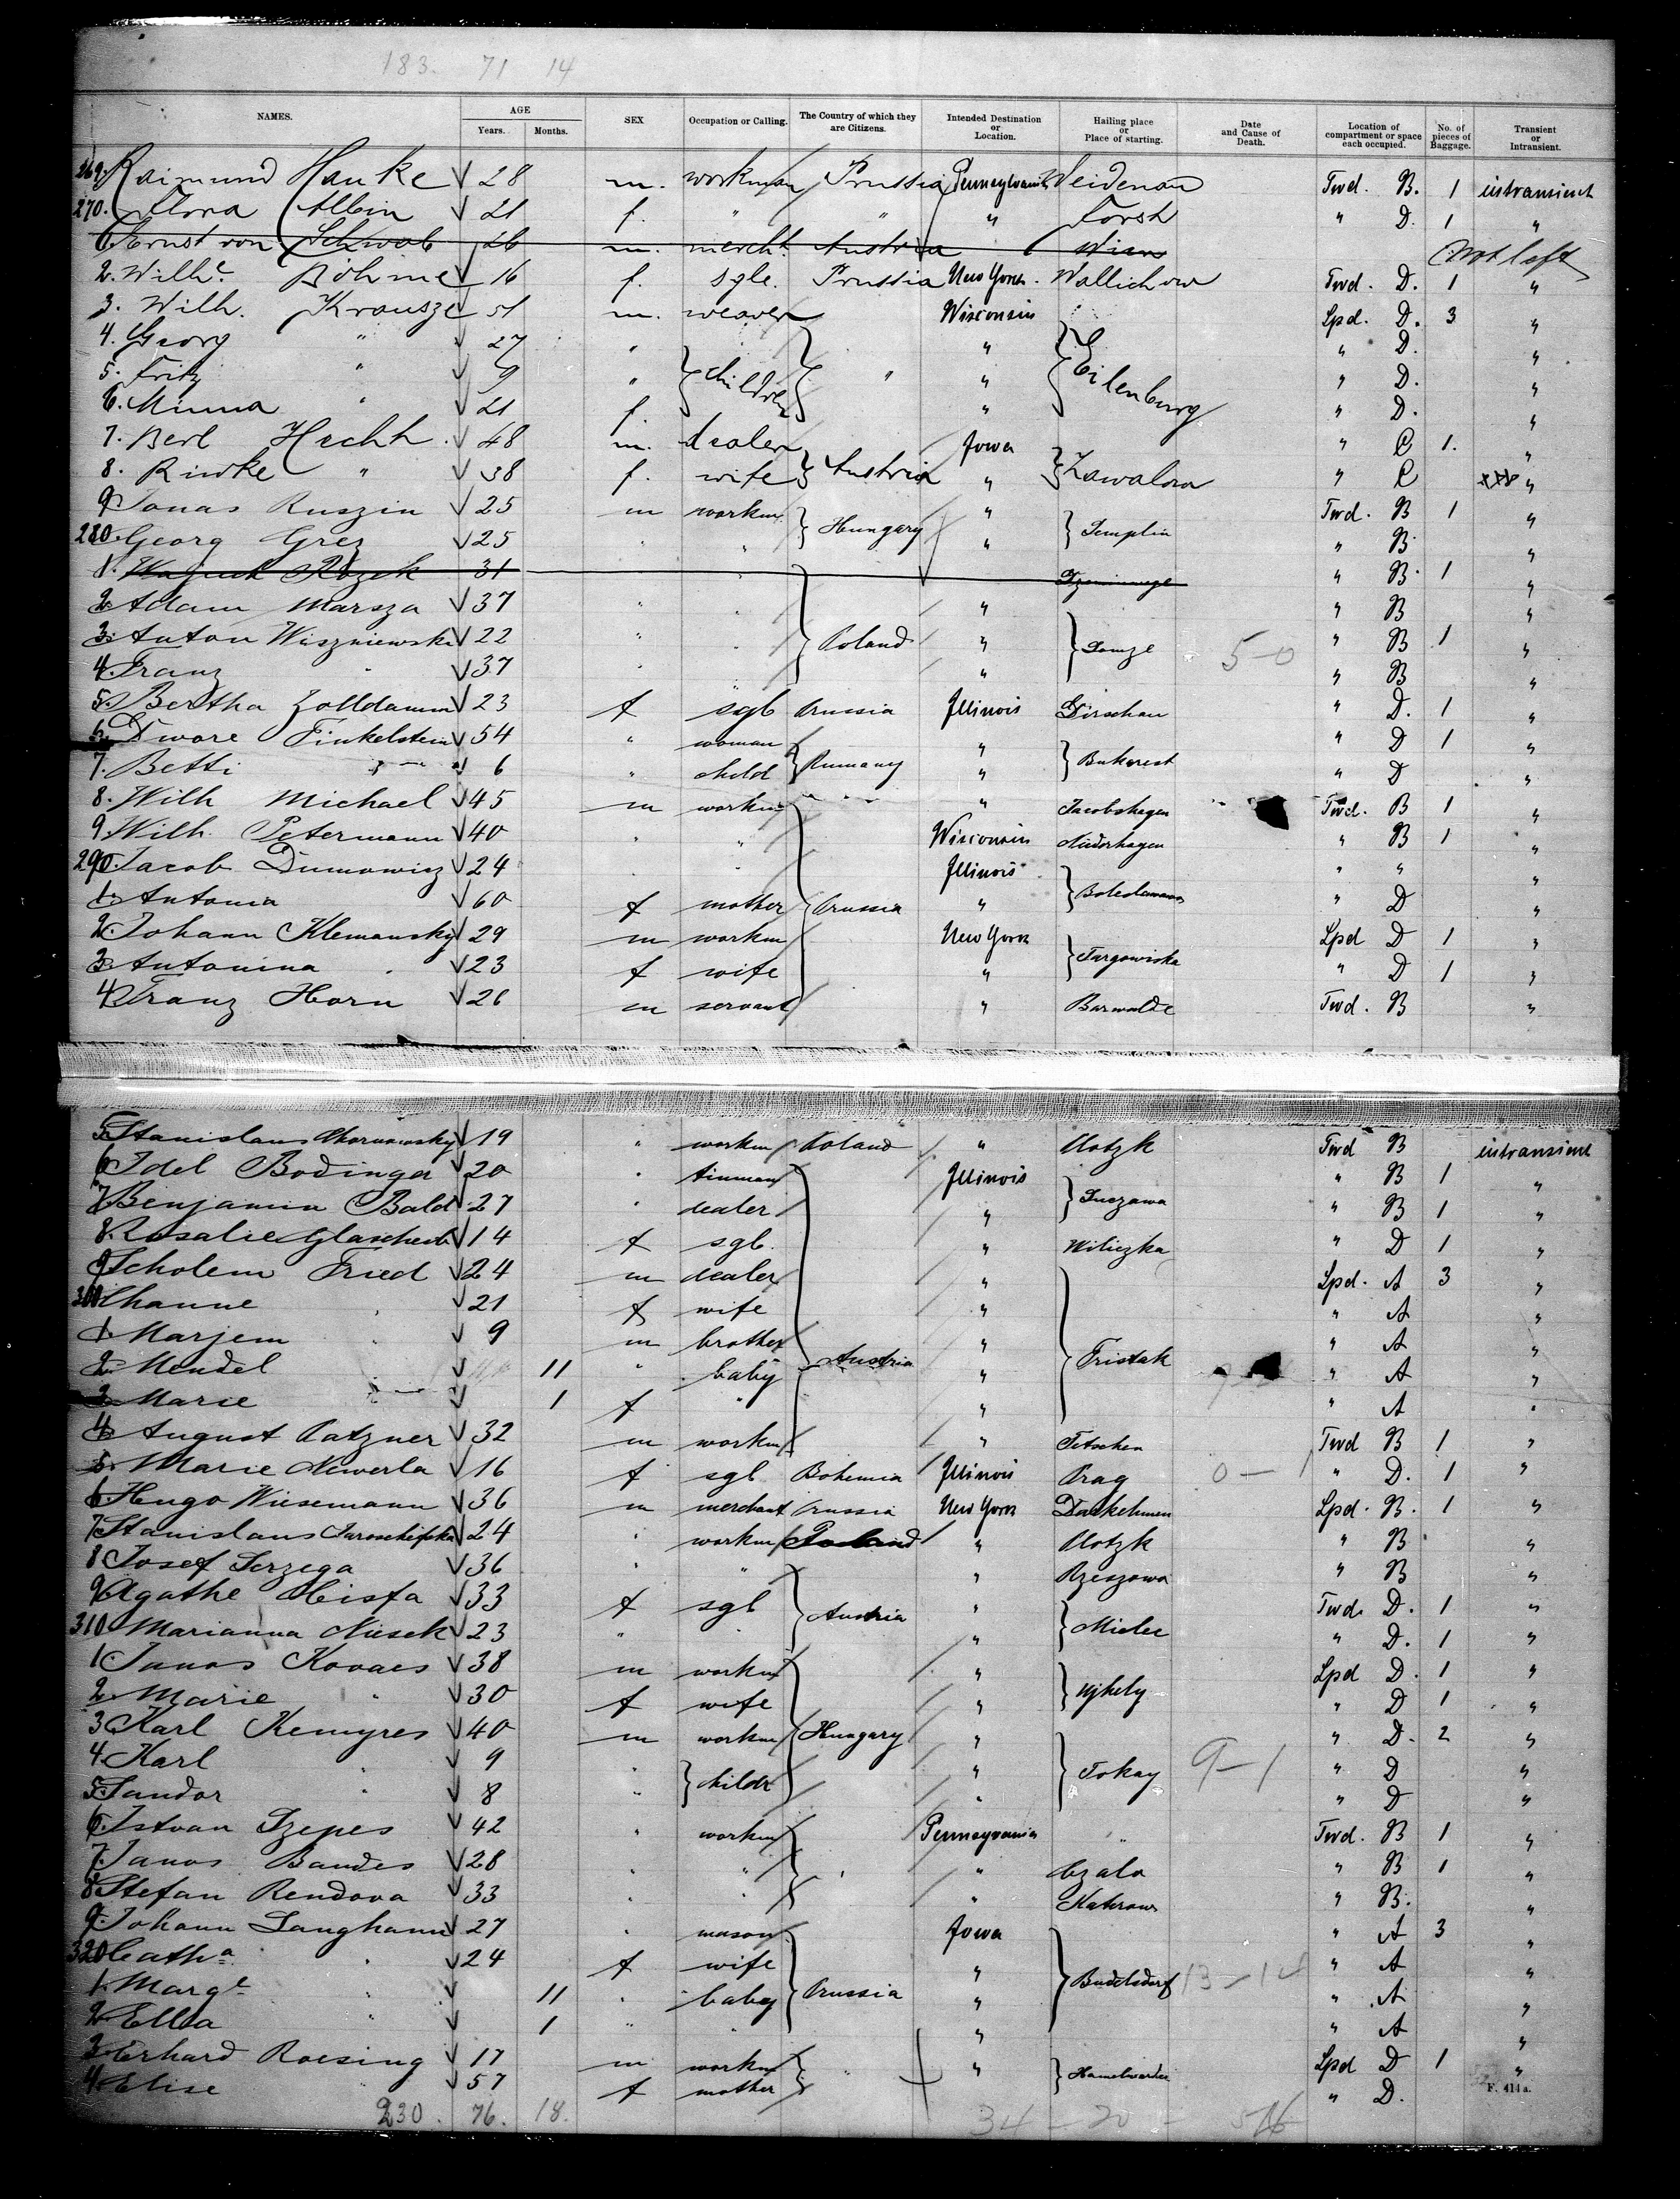 183. 71 14
NAMES. AGE Years. Months. SEX Occupation or Calling. The Country of which they are Citizens. Intended Destination or Location. Hailing place or Place of starting. Date and Cause of Death. Location of compartment or space each occupied. No. of pieces of Baggage. Transient or Intransient.
269. Raimund Hauke 28 m. workman Prussia Pennsylvania Weidenau Twd. B. 1 intransient
270. Flora Albin 21 f. " " " Forst " D. 1 "
1. Ernst von Schwab 26 m. mercht. Austria Wien Not left
2. Wilhe. Böhme 16 f. sgle. Prussia New York. Wallichow Twd. D. 1 "
3. Wilh. Krausze 51 m. weaver Wisconsin Spd. D. 3 "
4. Georg " 27 " children " " Eilenburg " D. "
5. Fritz " 9 " " " D. "
6. Minna " 21 f. " " D. "
7. Berl Hecht 48 m. dealer Austria Iowa Zawalow " C 1. "
8. Riwke " 38 f. wife " " C "
9. Jonas Ruszin 25 m workm Hungary " Templin Twd. B 1 "
280. Georg Grez 25 " " " " B "
1. Rozek 31 " B 1 "
2. Adam Marsza 37 " " Poland " Lomze " B "
3. Anton Wiszniewski 22 " " " 5-0 " B 1 "
4. Franz " 37 " " " " B "
5. Bertha Zolldamm 23 f sgl Prussia Illinois Dirschau " D. 1 "
6. Dwore Finkelstein 54 " woman Rumany " Bukarest " D 1 "
7. Betti " 6 " child " " D "
8. Wilh Michael 45 m workm Prussia " Jacobshagen Twd. B 1 "
9. Wilh. Petermann 40 " " Wisconsin Niderhagen " B 1 "
290. Jacob Dumowicz 24 " " Illinois " " "
1. Antonia 60 f mother " " D "
2. Johann Klemansky 29 m workm New York Targowiska Spd D 1 "
3. Antonina " 23 f wife " " D 1 "
4. Franz Horn 26 m servant " Barwalde Twd. B "
5. Stanislaus 19 " workm Poland " Plotzk Twd B intransient
6. Idel Bodinger 20 " tinman Austria Illinois Suczawa " B 1 "
7. Benjamin Bald 27 " dealer " " B 1 "
8. Rosalie 14 f sgl. " Wiliczka " D 1 "
9. Scholem Fried 24 m dealer " Fristak Spd. A 3 "
300 Channe " 21 f wife " " A "
1. Marjem " 9 m brother " " A "
2. Mendel " 11 " baby " " A "
3. Marie " 1 f " " " A "
4. August Patzner 32 m workm " Tetschen Twd B 1 "
5. Marie Newerla 16 f sgl Bohemia Illinois Prag 0-1 " D. 1 "
6. Hugo Wiesemann 36 m merchant Prussia New York Darkehmen Spd. B. 1 "
7. Stanislaus 24 " workm Poland " Plotzk " B "
8 Josef Serzega 36 " " Austria " Rzeszowa " B "
9 Agathe 33 f sgl " Mielec Twd. D. 1 "
310 Marianna Niesek 23 " " " " D. 1 "
1 Janos Kovacs 38 m workm Hungary " Ujhely Spd D. 1 "
2. Marie " 30 f wife " " D 1 "
3 Karl Kemyres 40 m workm " Tokay 9-1 " D. 2 "
4. Karl " 9 " childr " " D "
5. Sandor " 8 " " " D "
6. Istvan Szepes 42 " workm Pennsyvania " Twd. B 1 "
7. Janos Bandes 28 " " " " Czala " B 1 "
8 Stefan Rendova 33 " " " " B. "
9. Johann Langhann 27 " mason Prussia Iowa Budelsdorf 13-14 " A 3 "
320 Catha. " 24 f wife " " A "
1. Marge. " 11 " baby " " A "
2. Ella " 1 " " " " A "
3. Erhard Roesing 17 m workm " " Spd D 1 "
4. Elise 57 f mother " D. "
230. 76. 18. 34 - 20 - F. 414 a.